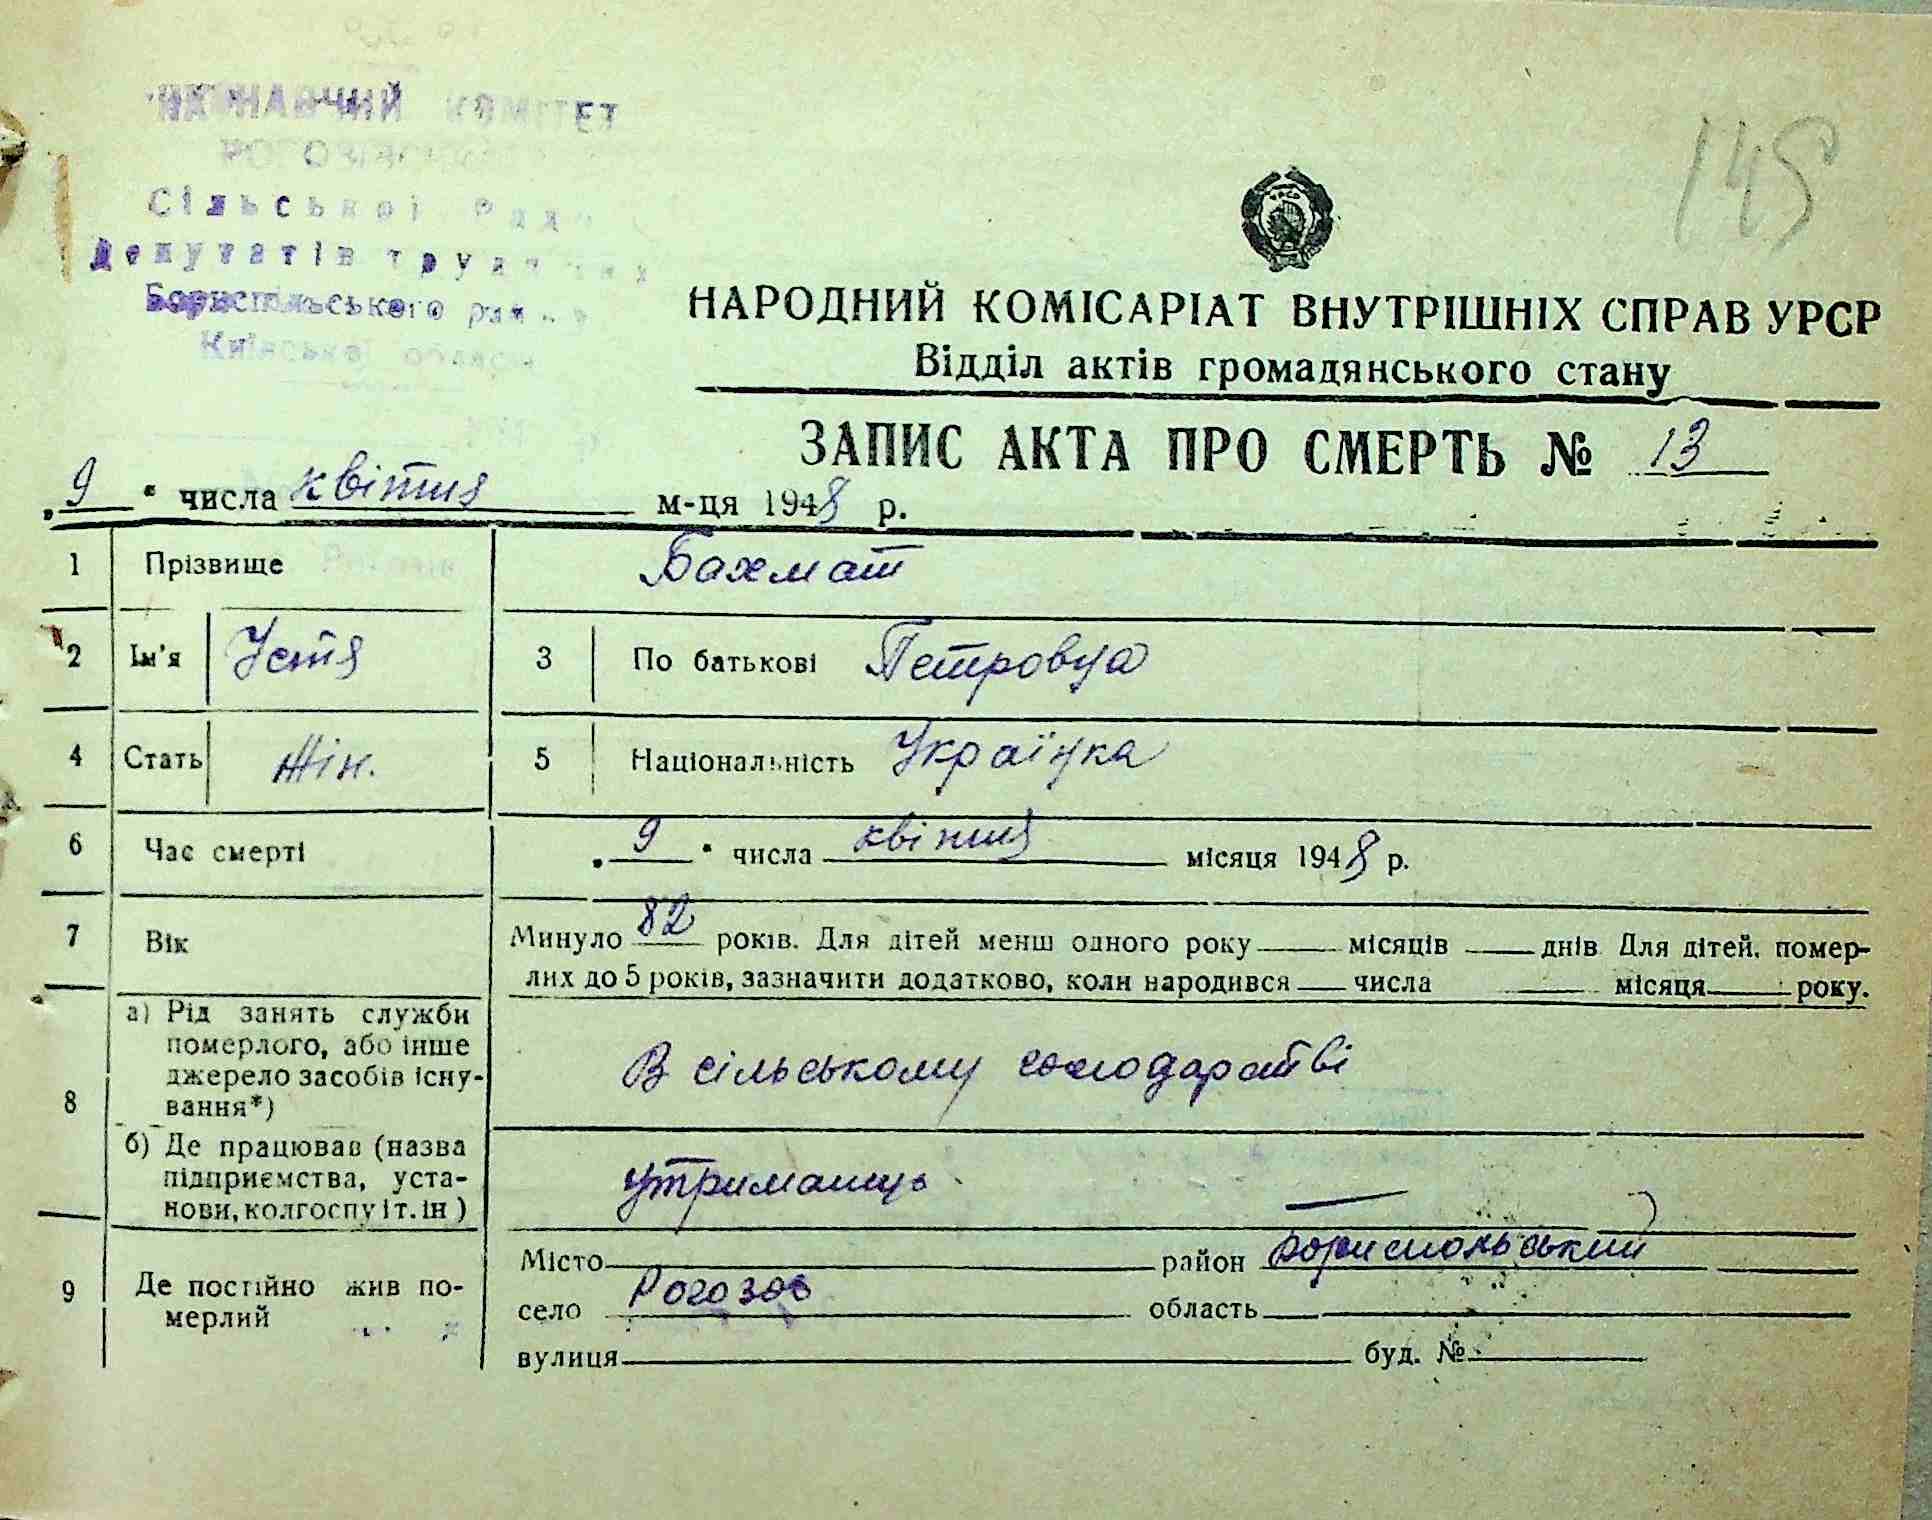 ВИКОНАВЧИЙ КОМІТЕТ
Сільської Ради
Депутатів трудящих
Бориспільського району
Київської області
145
УРСР
НАРОДНИЙ КОМІСАРІАТ ВНУТРІШНІХ СПРАВ УРСР
Відділ актів громадянського стану
ЗАПИС АКТА ПРО СМЕРТЬ № 13
„ 9 “ числа квітня м-ця 1948 р.
1 Прізвище Бахмат
2 Ім'я Устя 3 По батькові Петровна
4 Стать Жін. 5 Національність Українка
6 Час смерті „ 9 “ числа квітня місяця 1948 р.
7 Вік Минуло 82 років. Для дітей менш одного року місяців днів Для дітей, помер-
лих до 5 років, зазначити додатково, коли народився числа місяця року.
8 а) Рід занять служби
померлого, або інше
джерело засобів існу-
вання*)
В сільському господарстві
б) Де працював (назва
підприємства, уста-
нови, колгоспу і т. ін )
утриманець —
9 Де постійно жив по-
мерлий
Місто район Бориспольський
село Рогозов область
вулиця буд. №